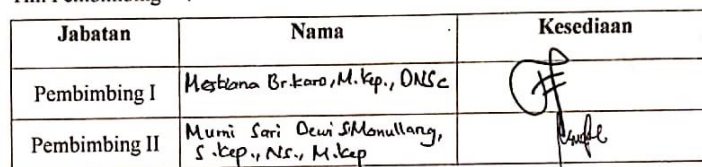 Jabatan Nama Kesediaan
Pembimbing I Mestiana Br.Karo, M.Kep., DNSc
Pembimbing II Murni Sari Dewi SManullang,
S.Kep., Ns., M.Kep